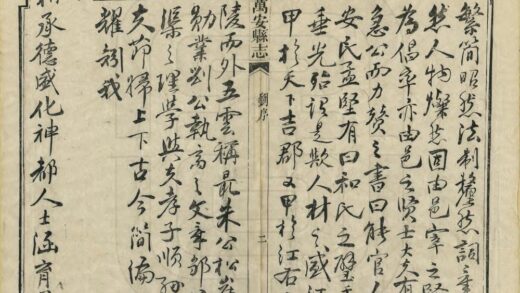 繁簡昭然法制釐然詞意
然人物燦然固由邑宰之賢
為倡率亦由邑之賢士大夫有
急公而力贊之書曰能官人
安民孟堅有曰和氏之璧
垂光殆謂是歟人材之盛江
甲於天下吉郡又甲於江右
萬安縣志
劉序
二
陵而外五雲稱最朱公松
勛業劉公執齋之文章鄒
渠之理學與夫孝子順孫
夫節婦上下古今簡編
耀矧我
承德盛化神都人士涵育